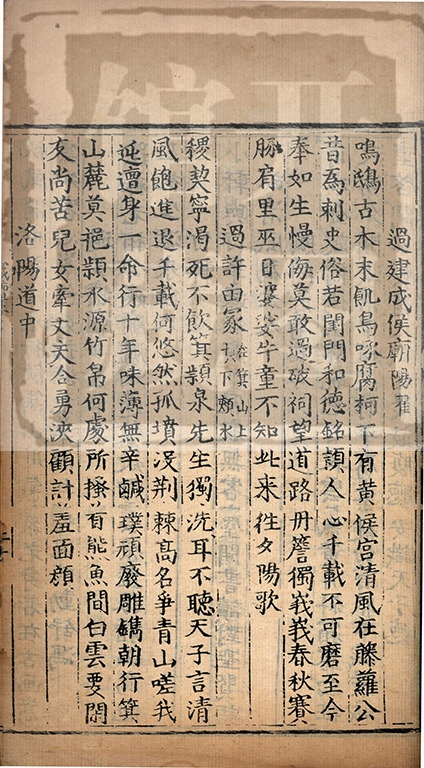 過建成侯廟陽翟
鳴鴟古木末飢鳥啄腐柯下有黃候宮清風在藤蘿公
昔為刺史俗若閨門和德銘頌人心千載不可磨至今
奉如生慢侮莫敢過破祠望道路丹簷獨峩峩春秋賽
豚肩里巫日婆娑牛童不知此来往夕陽歌
過許由冢在箕山上其下潁水
稷契寧渴死不飲箕潁泉先生獨洗耳不聽天子言清
風飽進退千載何悠然孤墳沒荆棘高名爭青山嗟我
迍邅身一命行十年味薄無辛鹹璞頑廢雕鐫朝行箕
山麓莫挹潁水源竹帛何處所搔首熊魚間白雲要閑
友尚苦兒女牽丈夫合勇決顧計羞面顔
洛陽道中